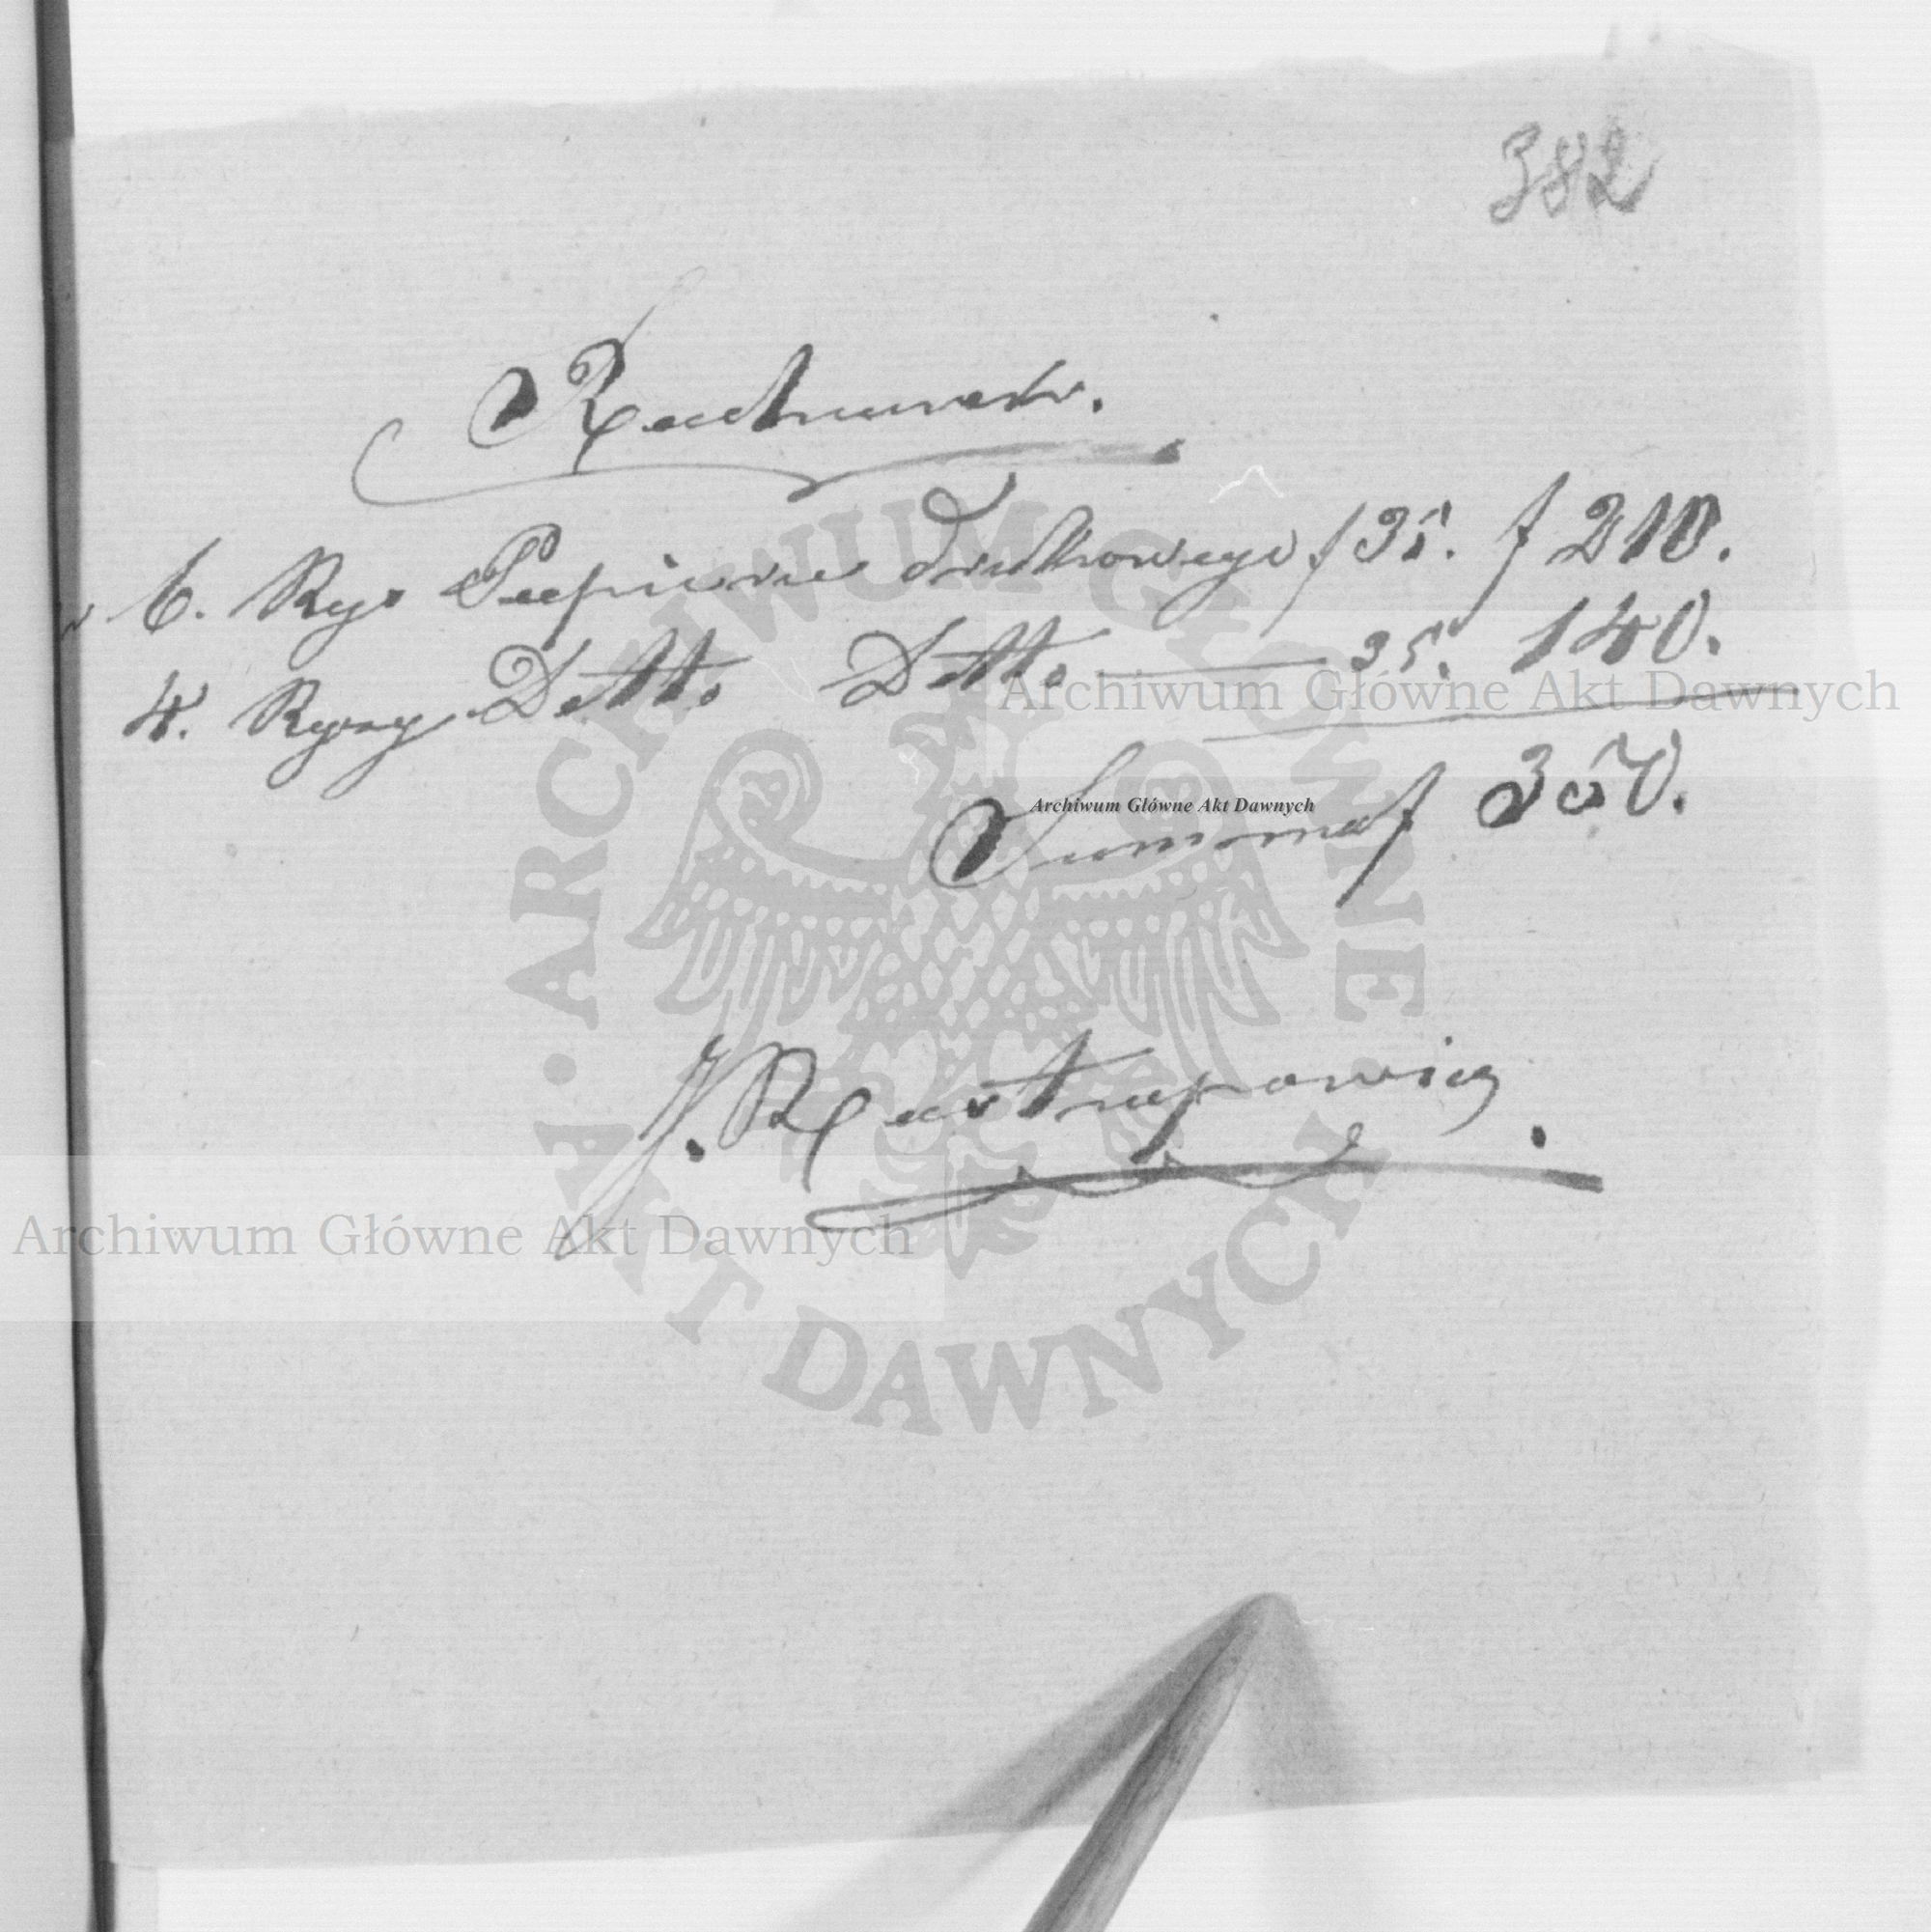 382
Rachunek.
6. Ryz Papieru drukowego f 35. f 210.
4. Ryzy Detto Detto — 35. 140.
Summa f 350.
J. Rastrapowicz.
Archiwum Główne Akt Dawnych
Archiwum Główne Akt Dawnych
Archiwum Główne Akt Dawnych
ARCHIWUM GŁÓWNE AKT DAWNYCH